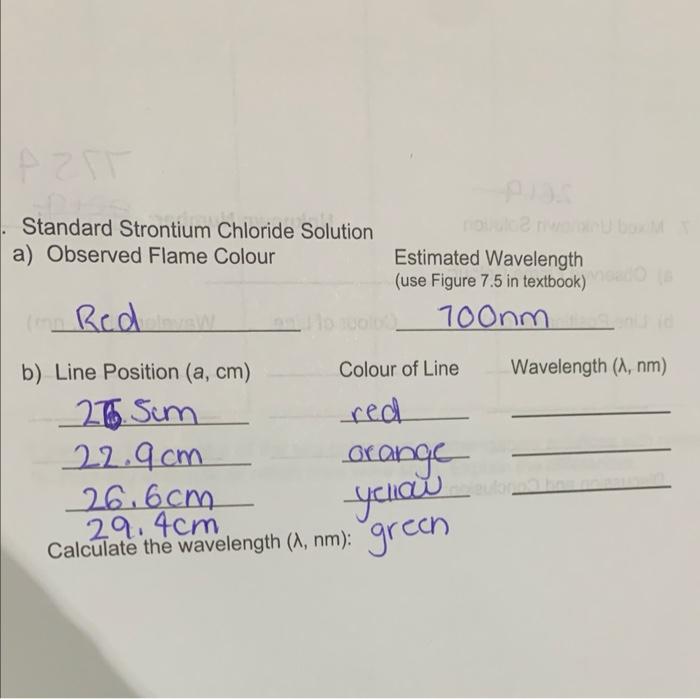 . Standard Strontium Chloride Solution
a) Observed Flame Colour Estimated Wavelength
(use Figure 7.5 in textbook)
Red 700nm
b) Line Position (a, cm) Colour of Line Wavelength (λ, nm)
red
22.9cm orange
26.6cm yellow
29.4cm green
Calculate the wavelength (λ, nm):